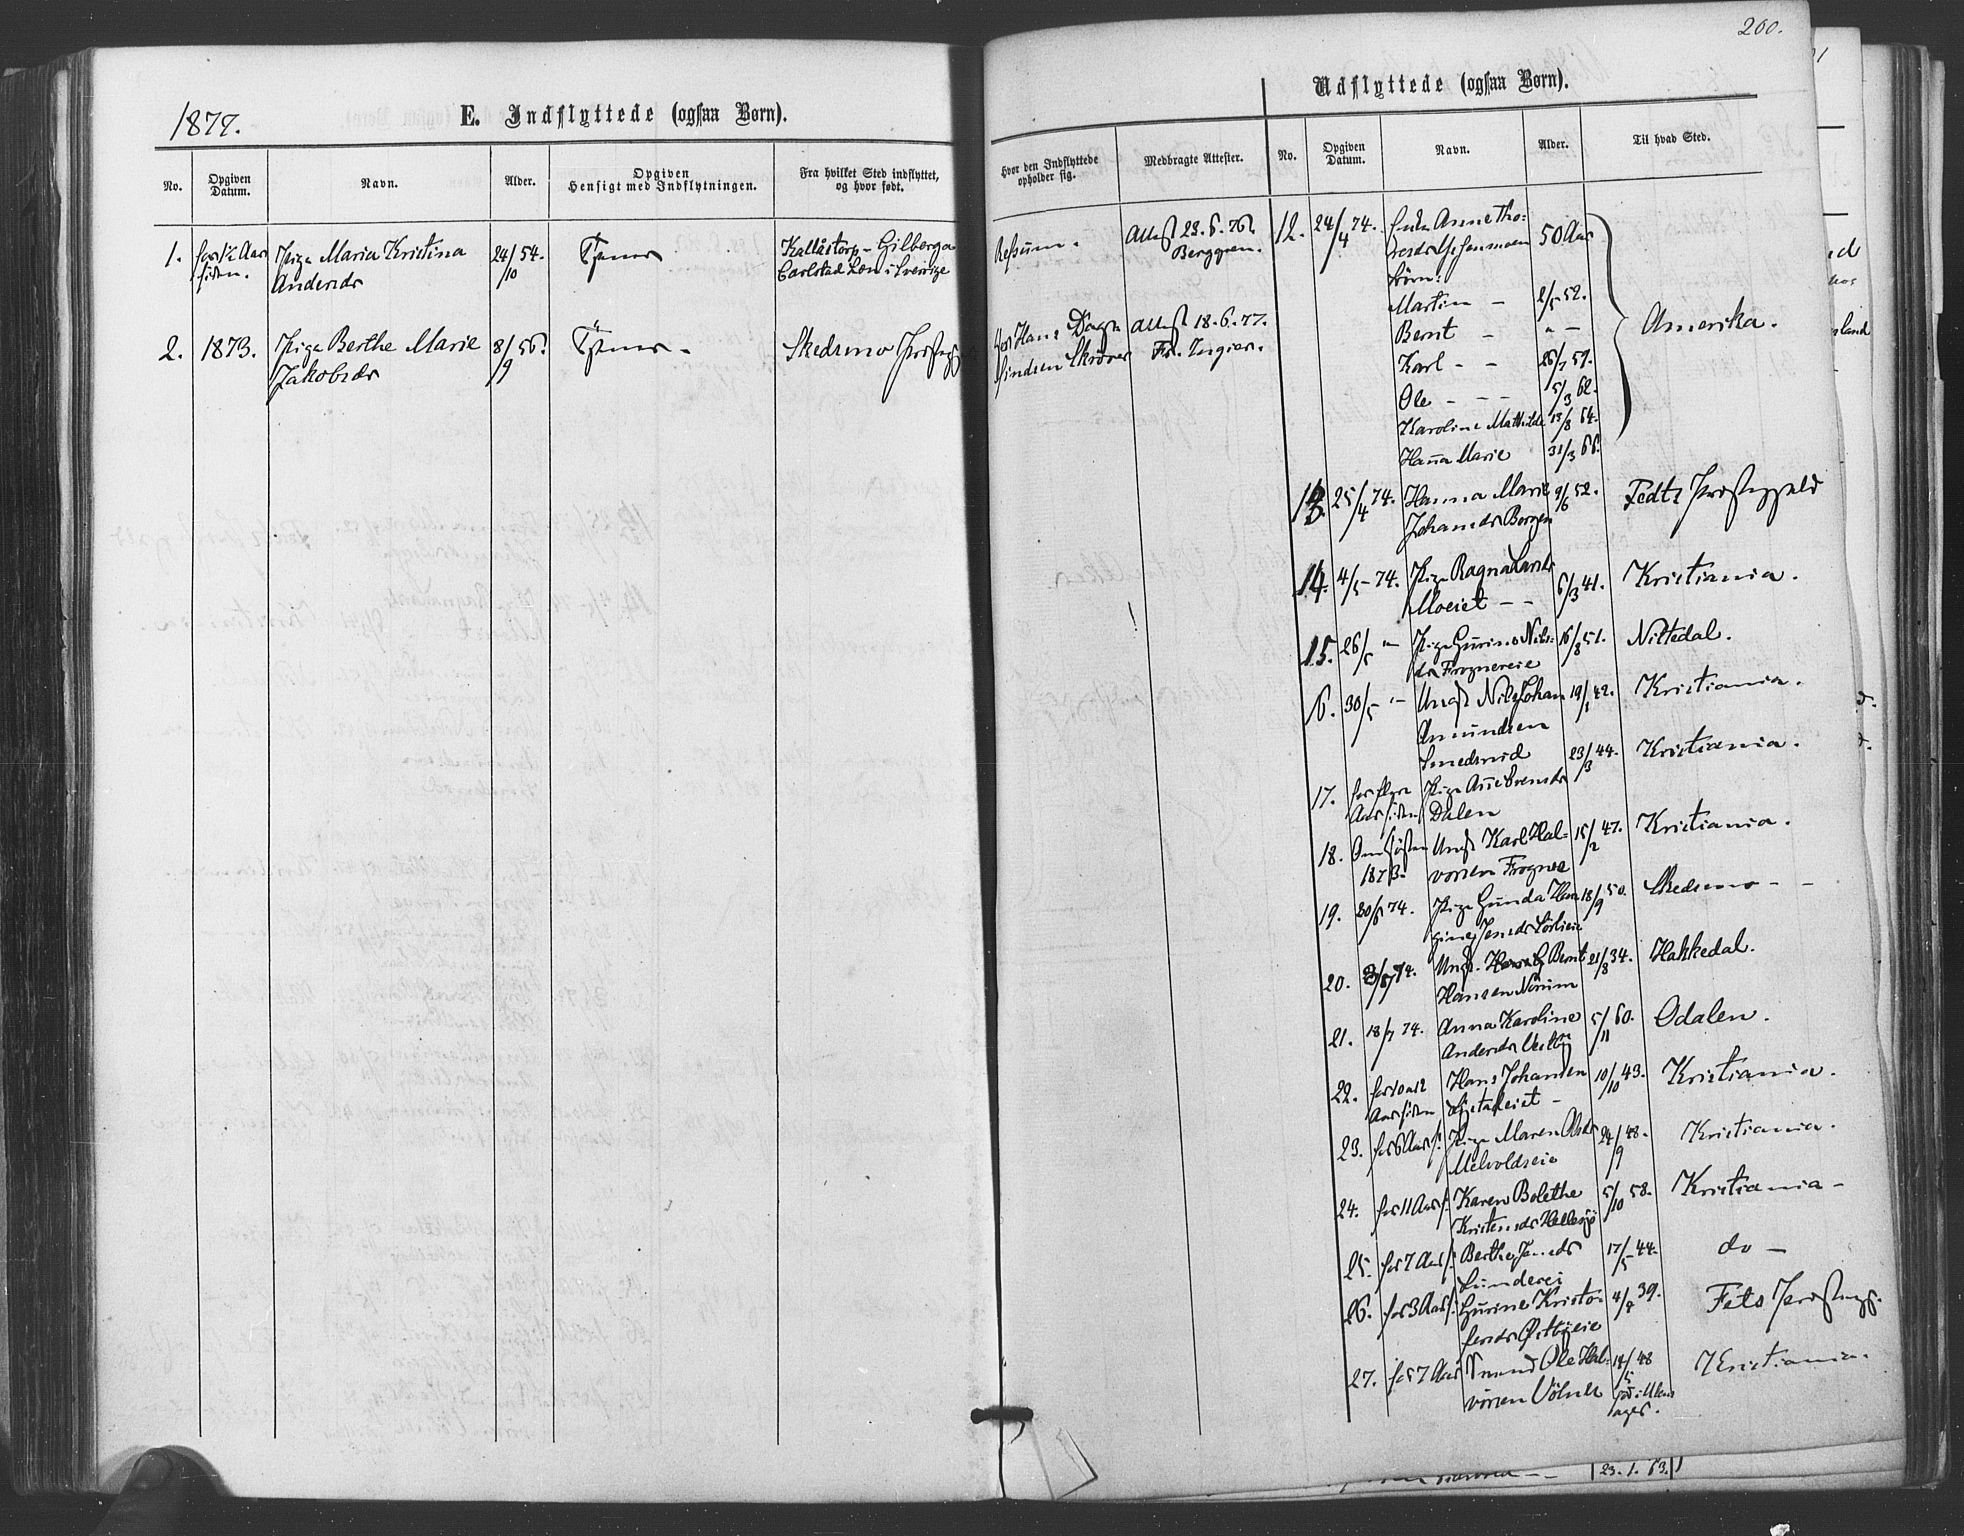 200.
1877.
E. Indflyttede (ogsaa Børn).
No.
Opgiven Datum.
Navn.
Alder.
Opgiven Hensigt med Indflytningen.
Fra hvilket Sted indflyttet, og hvor født.
Hvor den Indflyttede opholder sig.
Medbragte Attester.
1. for ½ Aar Pige Maria Kristina 24/10 54. Tjener Kallåstorp - Gilberga Attest 23.6.76.
siden. Andersdr Carlstad Len i Sverrige Berggren.
2. 1873. Pige Berthe Marie 8/9 56. Tjener - Skedsmo Prstegj Hos Hans Attest 18.6.77.
Jakobsdr Fr. Ingier.
Udflyttede (ogsaa Børn).
No.
Opgiven Datum.
Navn.
Alder.
Til hvad Sted.
12. 24/4 74. Enke Anne Tho- 50 Aar
Børn:
Martin - 2/5 52.
Bernt - " - Amerika.
Karl - - 26/7 57.
Ole - - - 5/3 62.
Karoline Mathilde 13/8 64.
Hanna Marie 31/3 66.
13. 25/4 74. Hanna Marie 9/6 52. Fedts Prstegjeld
Johansdr Borgen
14. 4/5 - 74. Pige Ragna Larsdr 6/3 41. Kristiania.
Moeiet - -
15. 26/5 " Pige Gurine Nils- 16/8 51. Nittedal.
dr Frognereie
16. 30/5 " Ungk Nils Johan 19/1 42. Kristiania.
Amundsen
Smedsrud
17. for flere Pige Anne Svensdr 23/3 44. Kristiania.
Aar siden Dalen
18. Om Høsten Ungk Karl Hal- 15/2 47. Kristiania.
1873. vorsen Frogner
19. 20/6 74. Pige Gunda Han 18/9 50. Skedsmo - -
gine Jensdr Sørlieie
20. 3/7 74. Ungk. Bernt 21/8 34. Hakkedal.
Hansen Nårum
21. 18/7 74. Anna Karoline 5/11 60. Odalen.
Andersdr Vestby
22. for 10 a 12 Hans Johansen 10/10 43. Kristiania.
Aar siden
23. for 6 Aar s. Pige Maren Olsdr 24/9 48. Kristiania.
Melvoldseie
24. for 11 Aar s. Karen Bolethe 5/10 58. Kristiania -
Kristensdr
25. for 7 Aar s. Berthe Jensdr 17/5 44. do -
Lundeiei
26. for 3 Aar s. Gurine Kristo- 4/8 39. Fets Prstegj.
fersdr Østbyeie
27. for 7 Aar Smed Ole Hal- 14/5 48 Kristiania.
vorsen
23.1.63.